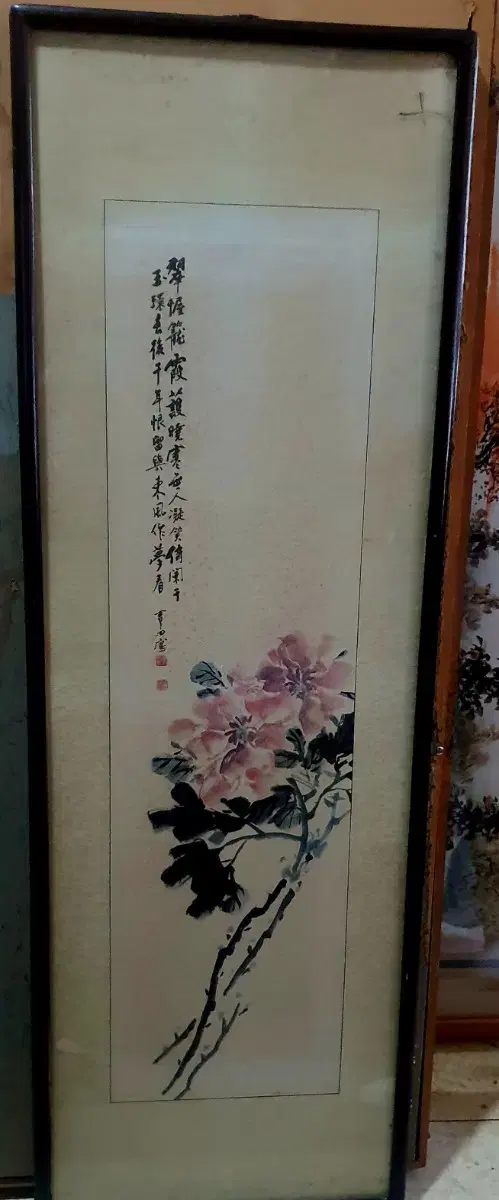 翠幄籠霞護曉寒無人凝笑倚闌干
玉環去後千年恨留與東風作夢看